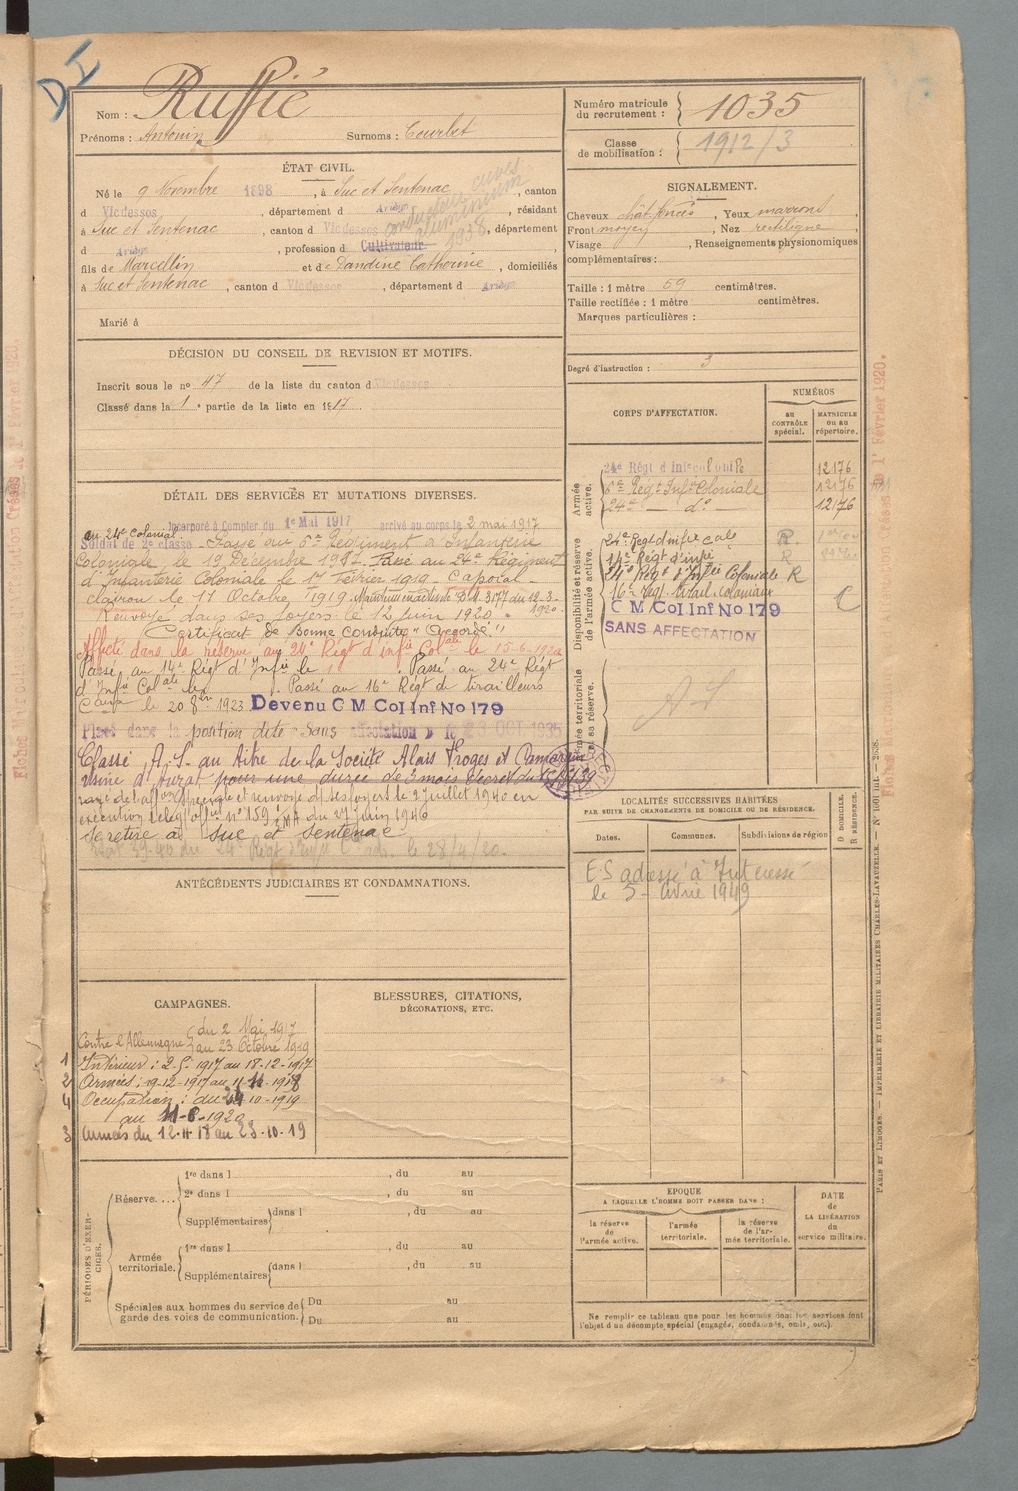 DI
Nom : Ruffié
Prénoms : Antonin Surnoms : Courbet
Numéro matricule du recrutement : 1035
Classe de mobilisation : 1912/3
ÉTAT CIVIL.
Né le 9 Novembre 1898, à Suc et Sentenac, canton
d Vicdessos, département d Ariège, résidant
à Suc et Sentenac, canton d Vicdessos, département
d Ariège, profession d Cultivateur
conducteur cuves
aluminium
1938
fils de Marcellin et de Dandine Catherine, domiciliés
à Suc et Sentenac, canton d Vicdessos, département d Ariège
Marié à
SIGNALEMENT.
Cheveux chât foncés, Yeux marrons
Front moyen, Nez rectiligne
Visage , Renseignements physionomiques
complémentaires :
Taille : 1 mètre 59 centimètres.
Taille rectifiée : 1 mètre centimètres.
Marques particulières :
Degré d'instruction : 3
DÉCISION DU CONSEIL DE REVISION ET MOTIFS.
Inscrit sous le n° 47 de la liste du canton d Vicdessos
Classé dans la 1e partie de la liste en 1917
DÉTAIL DES SERVICES ET MUTATIONS DIVERSES.
Incorporé à Compter du 1er Mai 1917 arrivé au corps le 2 mai 1917
au 24e Colonial.
Soldat de 2e classe - Passé au 5e Régiment d'Infanterie
Coloniale, le 19 Décembre 1917. Passé au 24e Régiment
d'Infanterie Coloniale le 17 Février 1919 - Caporal -
clairon le 11 Octobre 1919. du 12-3-
1920
Renvoyé dans ses foyers le 12 Juin 1920.
Certificat de Bonne conduite "Accordé"
Affecté dans la réserve au 24e Régt d'infie Colale le 15-6-1920
Passé au 14e Régt d'Infie le 1 . Passé au 24e Régt
d'Infie Colale le . Passé au 16e Régt de tirailleurs
le 20 8bre 1923 Devenu C M Col Inf No 179
Placé dans la position dite Sans affectation le 23 OCT 1935
Classé A.S. au titre de la Société Alais Froges et Camargue
usine d'Auzat pour une durée de 3 mois
et renvoyé ds ses foyers le 2 Juillet 1940 en
exécution n° 159 du 27 Juin 1940
se retire à Suc et Sentenac
39-40 du 24e Régt d'Inf le 28/4/20.
CORPS D'AFFECTATION.
NUMÉROS
au CONTRÔLE spécial.
MATRICULE ou au répertoire.
Armée active.
24e Régt d'inf coloniale 12176
5e Régt Infie Coloniale 12176
24e — do — 12176
Disponibilité et réserve de l'armée active.
24e Regt d'infie cale R
14e Régt d'infie R
24e Régt d'Infie Coloniale R
16e régt tirail. coloniaux C
C M Col Inf No 179
SANS AFFECTATION
Armée territoriale et sa réserve.
A S
LOCALITÉS SUCCESSIVES HABITÉES
PAR SUITE DE CHANGEMENTS DE DOMICILE OU DE RÉSIDENCE.
Dates. Communes. Subdivisions de région D DOMICILE. R RÉSIDENCE.
E S adressé à Intéressé
le 5 - Avril 1949
ANTÉCÉDENTS JUDICIAIRES ET CONDAMNATIONS.
CAMPAGNES.
Contre l'Allemagne du 2 Mai 1917
au 23 Octobre 1919
1 Intérieur : 2-5-1917 au 18-12-1917
2 Armées : 19-12-1917 au 11-11-1918
4 Occupation : du 24 10-1919
au 11-6-1920
3 Armées du 12-11-18 au 23-10-19
BLESSURES, CITATIONS,
DÉCORATIONS, ETC.
PÉRIODES D'EXERCICES.
Réserve....
1re dans l , du au
2e dans l , du au
Supplémentaires dans l , du au
Armée territoriale.
1re dans l , du au
Supplémentaires dans l , du au
Spéciales aux hommes du service de garde des voies de communication.
Du au
Du au
EPOQUE
A LAQUELLE L'HOMME DOIT PASSER DANS :
la réserve de l'armée active.
l'armée territoriale.
la réserve de l'armée territoriale.
DATE de LA LIBÉRATION du service militaire.
Ne remplir ce tableau que pour les hommes dont les services font
l'objet d'un décompte spécial (engagés, condamnés, omis, etc.).
PARIS ET LIMOGES. — IMPRIMERIE ET LIBRAIRIE MILITAIRES CHARLES-LAVAUZELLE.
1er Février 1920.